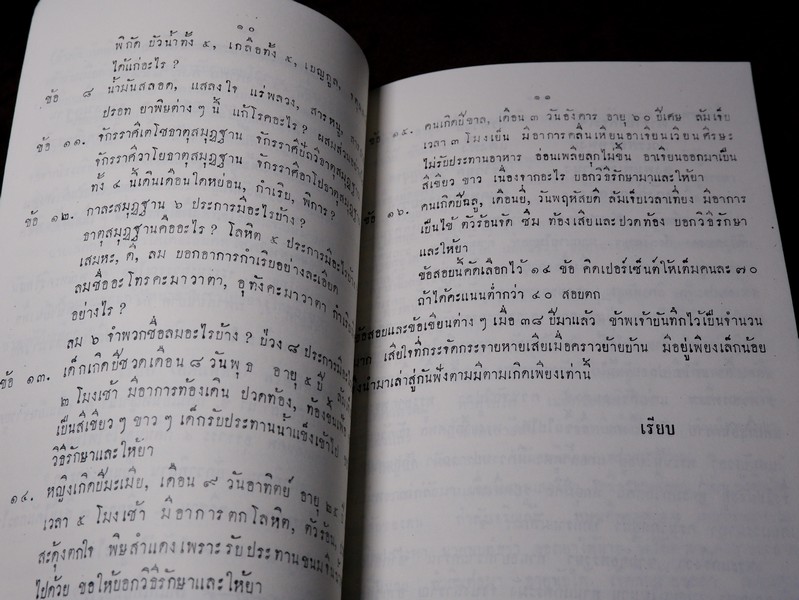 ๑๐
พิกัด บัวน้ำทั้ง ๕, เกลือทั้ง ๕, เบญกูล,
ได้แก่อะไร ?
ข้อ ๘ น้ำมันสลอด, แสลงใจ แร่พลวง, สารหนู,
ปรอท ยาพิษต่าง ๆ นี้ แก้โรคอะไร ? ผสมส่วน
ข้อ ๑๑. จักรราศีเตโชธาตุสมุฏฐาน จักรราศีปถวีธาตุสมุฏฐาน
จักรราศีวาโยธาตุสมุฏฐาน จักรราศีอาโปธาตุสมุฏฐาน
ทั้ง ๔ นี้เดินเดือนใดหย่อน, กำเริบ, พิการ?
ข้อ ๑๒. กาละสมุฏฐาน ๖ ประการมีอะไรบ้าง ?
ธาตุสมุฏฐานคืออะไร ? โลหิต ๕ ประการมีอะไรบ้าง
เสมหะ, ดี, ลม บอกอาการกำเริบอย่างละเอียด
ลมชื่ออะโทรคะมาวาตา, อุทังคะมาวาตา
อย่างไร ?
ลม ๖ จำพวกชื่อลมอะไรบ้าง ? ป่วง ๘ ประการมี
ข้อ ๑๓. เด็กเกิดปีชวดเดือน ๘ วันพุธ อายุ ๕ ปี
๒ โมงเช้า มีอาการท้องเดิน ปวดท้อง, ท้องขึ้น
เป็นสีเขียว ๆ ขาว ๆ เด็กรับประทานน้ำแข็งเข้าไป
วิธีรักษาและให้ยา
๑๔. หญิงเกิดปีมะเมีย, เดือน ๙ วันอาทิตย์ อายุ ๒๕ ปี
เวลา ๕ โมงเช้า มีอาการตกโลหิต, ตัวร้อน,
สะดุ้งตกใจ พิษสำแดงเพราะรับประทานขนมจีน
ไปด้วย ขอให้บอกวิธีรักษาและให้ยา
๑๑
ข้อ ๑๕. คนเกิดปีขาล, เดือน ๓ วันอังคาร อายุ ๖๐ ปีเศษ ล้มเจ็บ
เวลา ๓ โมงเย็น มีอาการคลื่นเหียนอาเจียนเวียนศีรษะ
ไม่รับประทานอาหาร อ่อนเพลียลุกไม่ขึ้น อาเจียนออกมาเป็น
สีเขียว ขาว เนื่องจากอะไร บอกวิธีรักษามาและให้ยา
ข้อ ๑๖. คนเกิดปีฉลู, เดือนยี่, วันพฤหัสบดี ล้มเจ็บเวลาเที่ยง มีอาการ
เป็นไข้ ตัวร้อนจัด ซึม ท้องเสียและปวดท้อง บอกวิธีรักษา
และให้ยา
ข้อสอบนี้คัดเลือกไว้ ๑๔ ข้อ คิดเปอร์เซ็นต์ให้เต็มคนละ ๗๐
ถ้าได้คะแนนต่ำกว่า ๔๐ สอบตก
ข้อสอบและข้อเขียนต่าง ๆ เมื่อ ๓๘ ปีมาแล้ว ข้าพเจ้าบันทึกไว้เป็นจำนวน
มาก เสียใจที่กระจัดกระจายหายเสียเมื่อคราวย้ายบ้าน มีอยู่เพียงเล็กน้อย
จึงนำมาเล่าสู่กันฟังตามมีตามเกิดเพียงเท่านี้
เรียบ